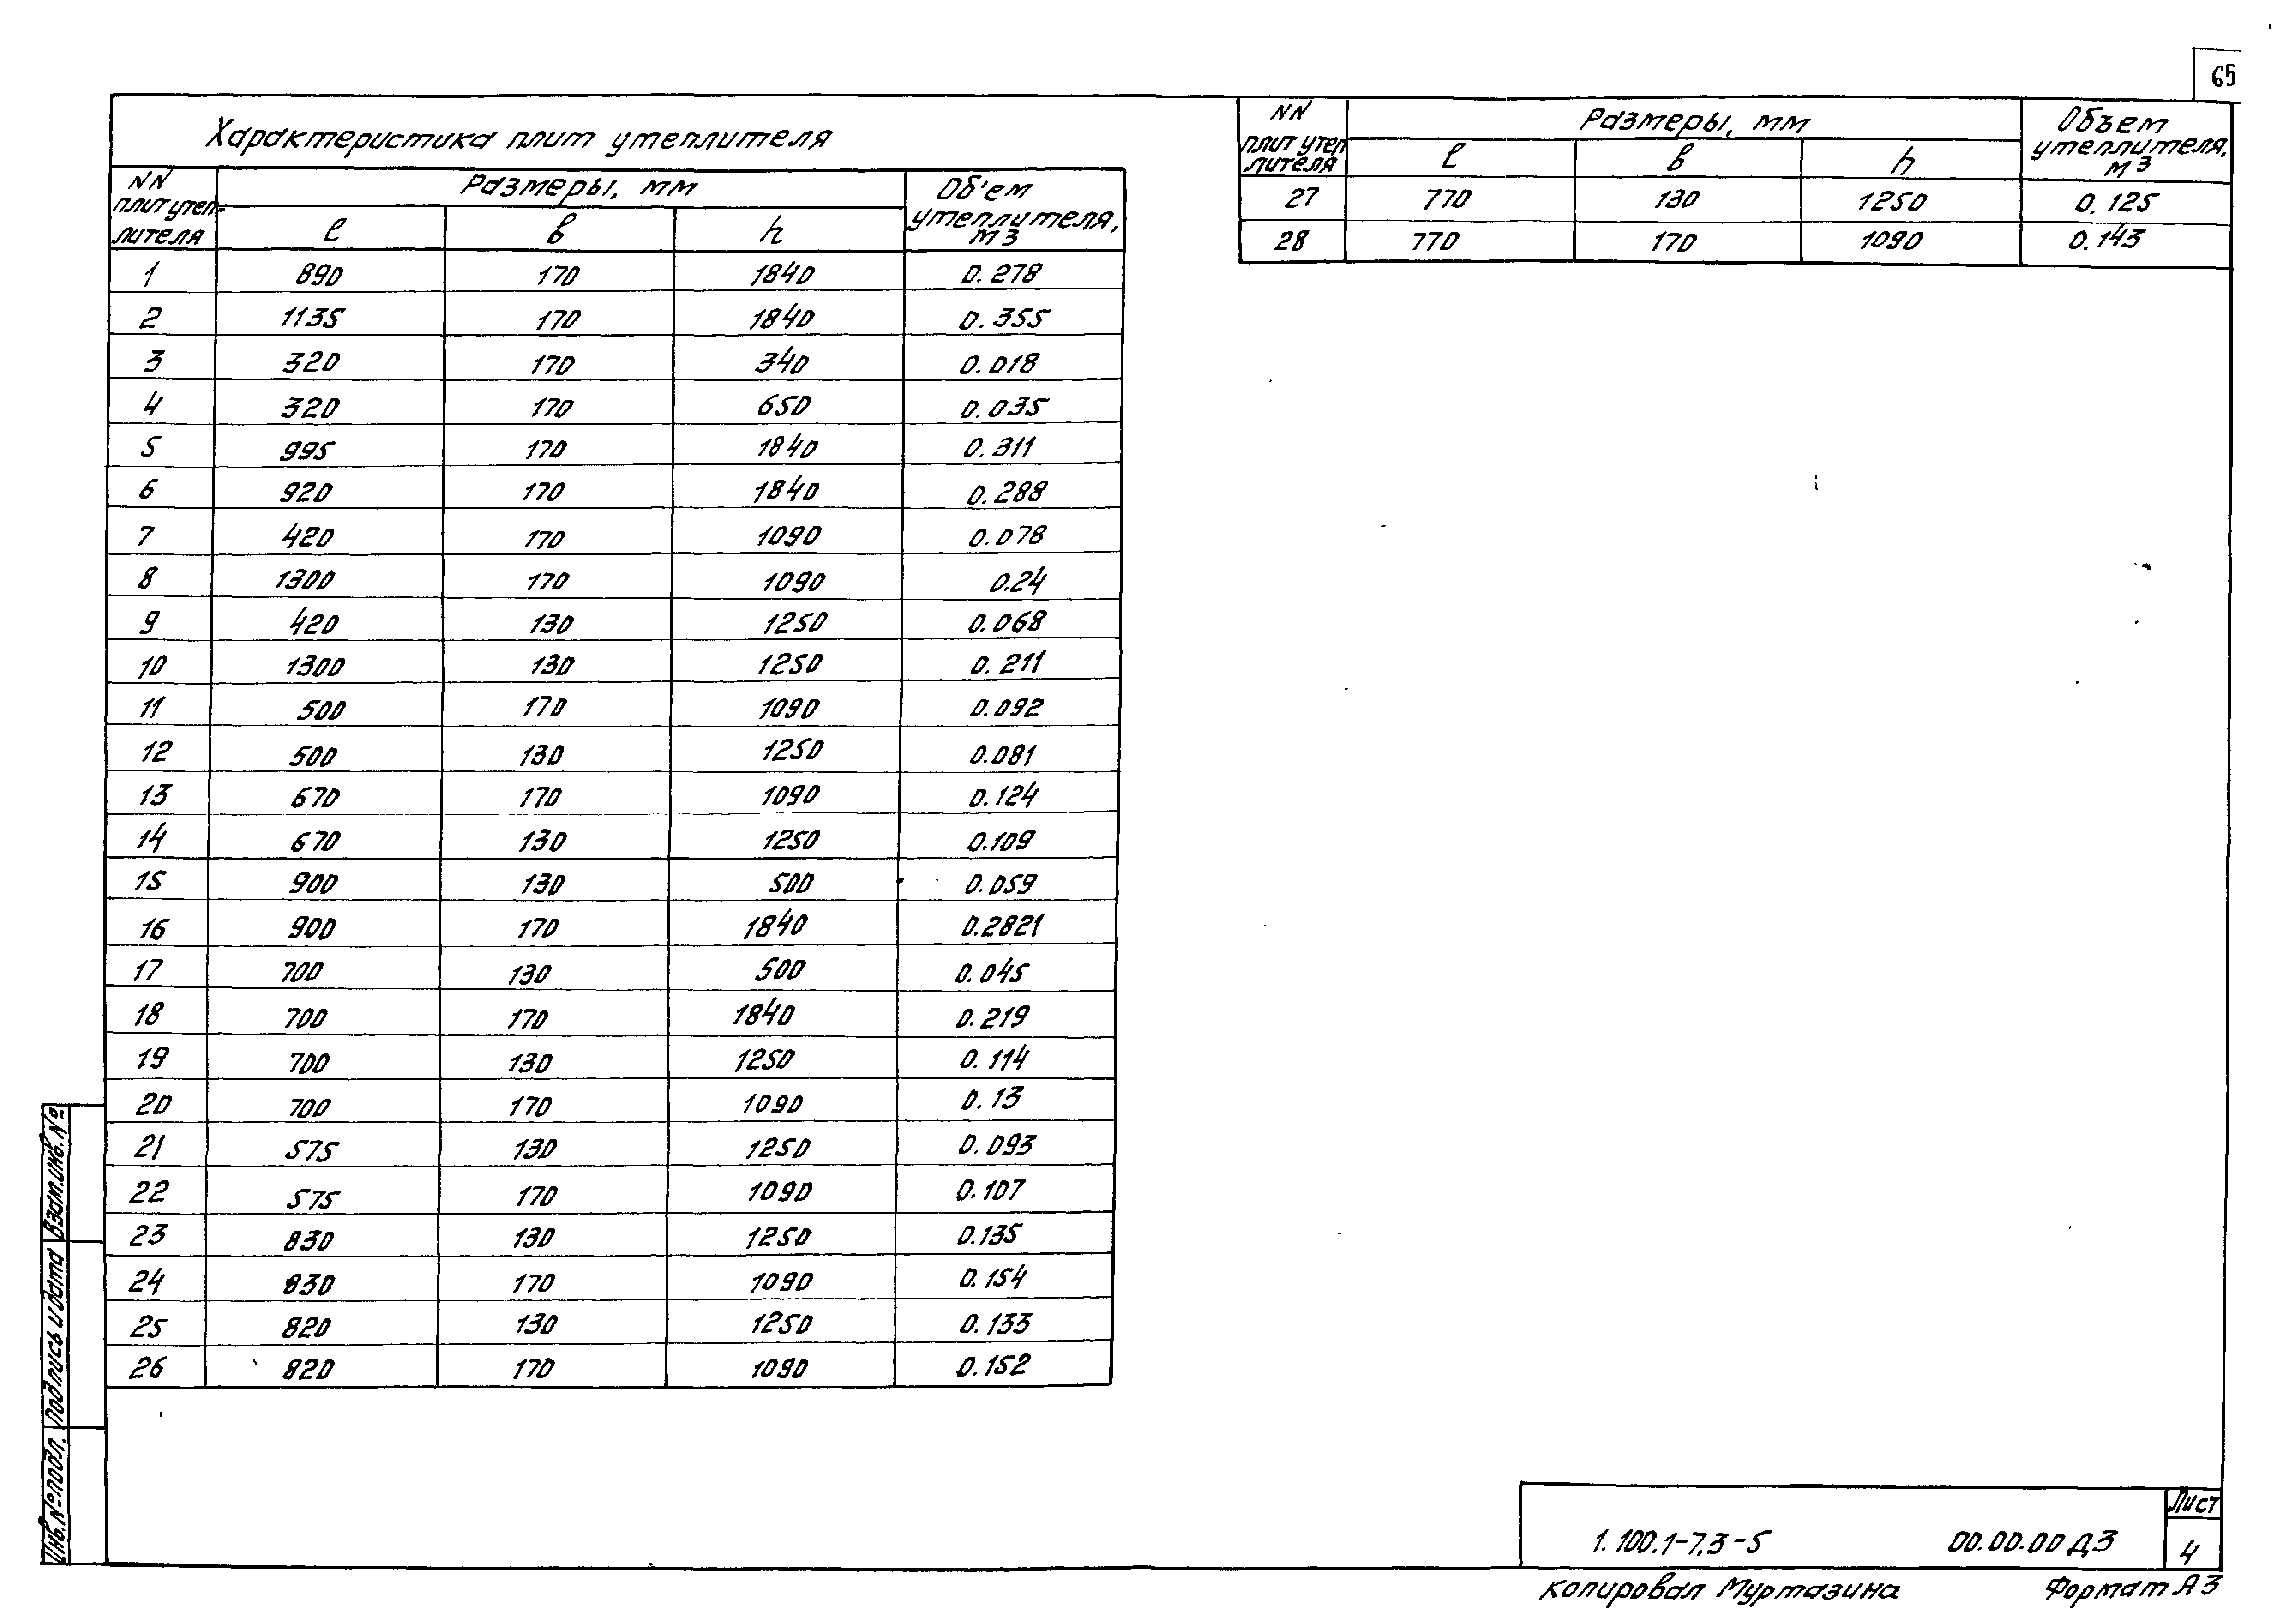 65
Характеристика плит утеплителя
NN плит утеп-лителя | Размеры, мм | Об'ем утеплителя, м3
l | b | h
1 | 890 | 170 | 1840 | 0.278
2 | 1135 | 170 | 1840 | 0.355
3 | 320 | 170 | 340 | 0.018
4 | 320 | 170 | 650 | 0.035
5 | 995 | 170 | 1840 | 0.311
6 | 920 | 170 | 1840 | 0.288
7 | 420 | 170 | 1090 | 0.078
8 | 1300 | 170 | 1090 | 0.24
9 | 420 | 130 | 1250 | 0.068
10 | 1300 | 130 | 1250 | 0.211
11 | 500 | 170 | 1090 | 0.092
12 | 500 | 130 | 1250 | 0.081
13 | 670 | 170 | 1090 | 0.124
14 | 670 | 130 | 1250 | 0.109
15 | 900 | 130 | 500 | 0.059
16 | 900 | 170 | 1840 | 0.2821
17 | 700 | 130 | 500 | 0.045
18 | 700 | 170 | 1840 | 0.219
19 | 700 | 130 | 1250 | 0.114
20 | 700 | 170 | 1090 | 0.13
21 | 575 | 130 | 1250 | 0.093
22 | 575 | 170 | 1090 | 0.107
23 | 830 | 130 | 1250 | 0.135
24 | 830 | 170 | 1090 | 0.154
25 | 820 | 130 | 1250 | 0.133
26 | 820 | 170 | 1090 | 0.152
NN плит утеп лителя | Размеры, мм | Объем утеплителя, м3
l | b | h
27 | 770 | 130 | 1250 | 0.125
28 | 770 | 170 | 1090 | 0.143
Взам.инв.№
Подпись и дата
Инв.№подл.
1.100.1-7.3-5 00.00.00 Д3
Лист
4
копировал Муртазина Формат А3